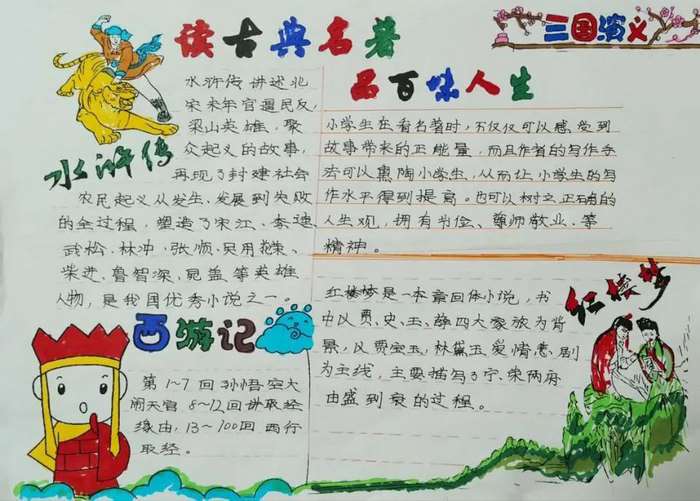 读古典名著
品百味人生
三国演义
水浒传
水浒传讲述北
宋末年官逼民反,
梁山英雄,聚
众起义的故事,
再现了封建社会
农民起义从发生、发展到失败
的全过程,塑造了宋江、李逵、
武松、林冲、张顺、吴用、花荣、
柴进、鲁智深、晁盖等英雄
人物,是我国优秀小说之一。
小学生在看名著时,不仅仅可以感受到
故事带来的正能量,而且作者的写作手
法可以熏陶小学生,从而让小学生的写
作水平得到提高。也可以树立正确的
人生观,拥有为俭、尊师敬业、等
精神。
西游记
第1~7回孙悟空大
闹天宫8~12回讲取经
缘由,13~100回西行
取经。
红楼梦
红楼梦是一本章回体小说,书
中以贾、史、王、薛四大家族为背
景,以贾宝玉,林黛玉爱情悲剧
为主线,主要描写了宁、荣两府
由盛到衰的过程。